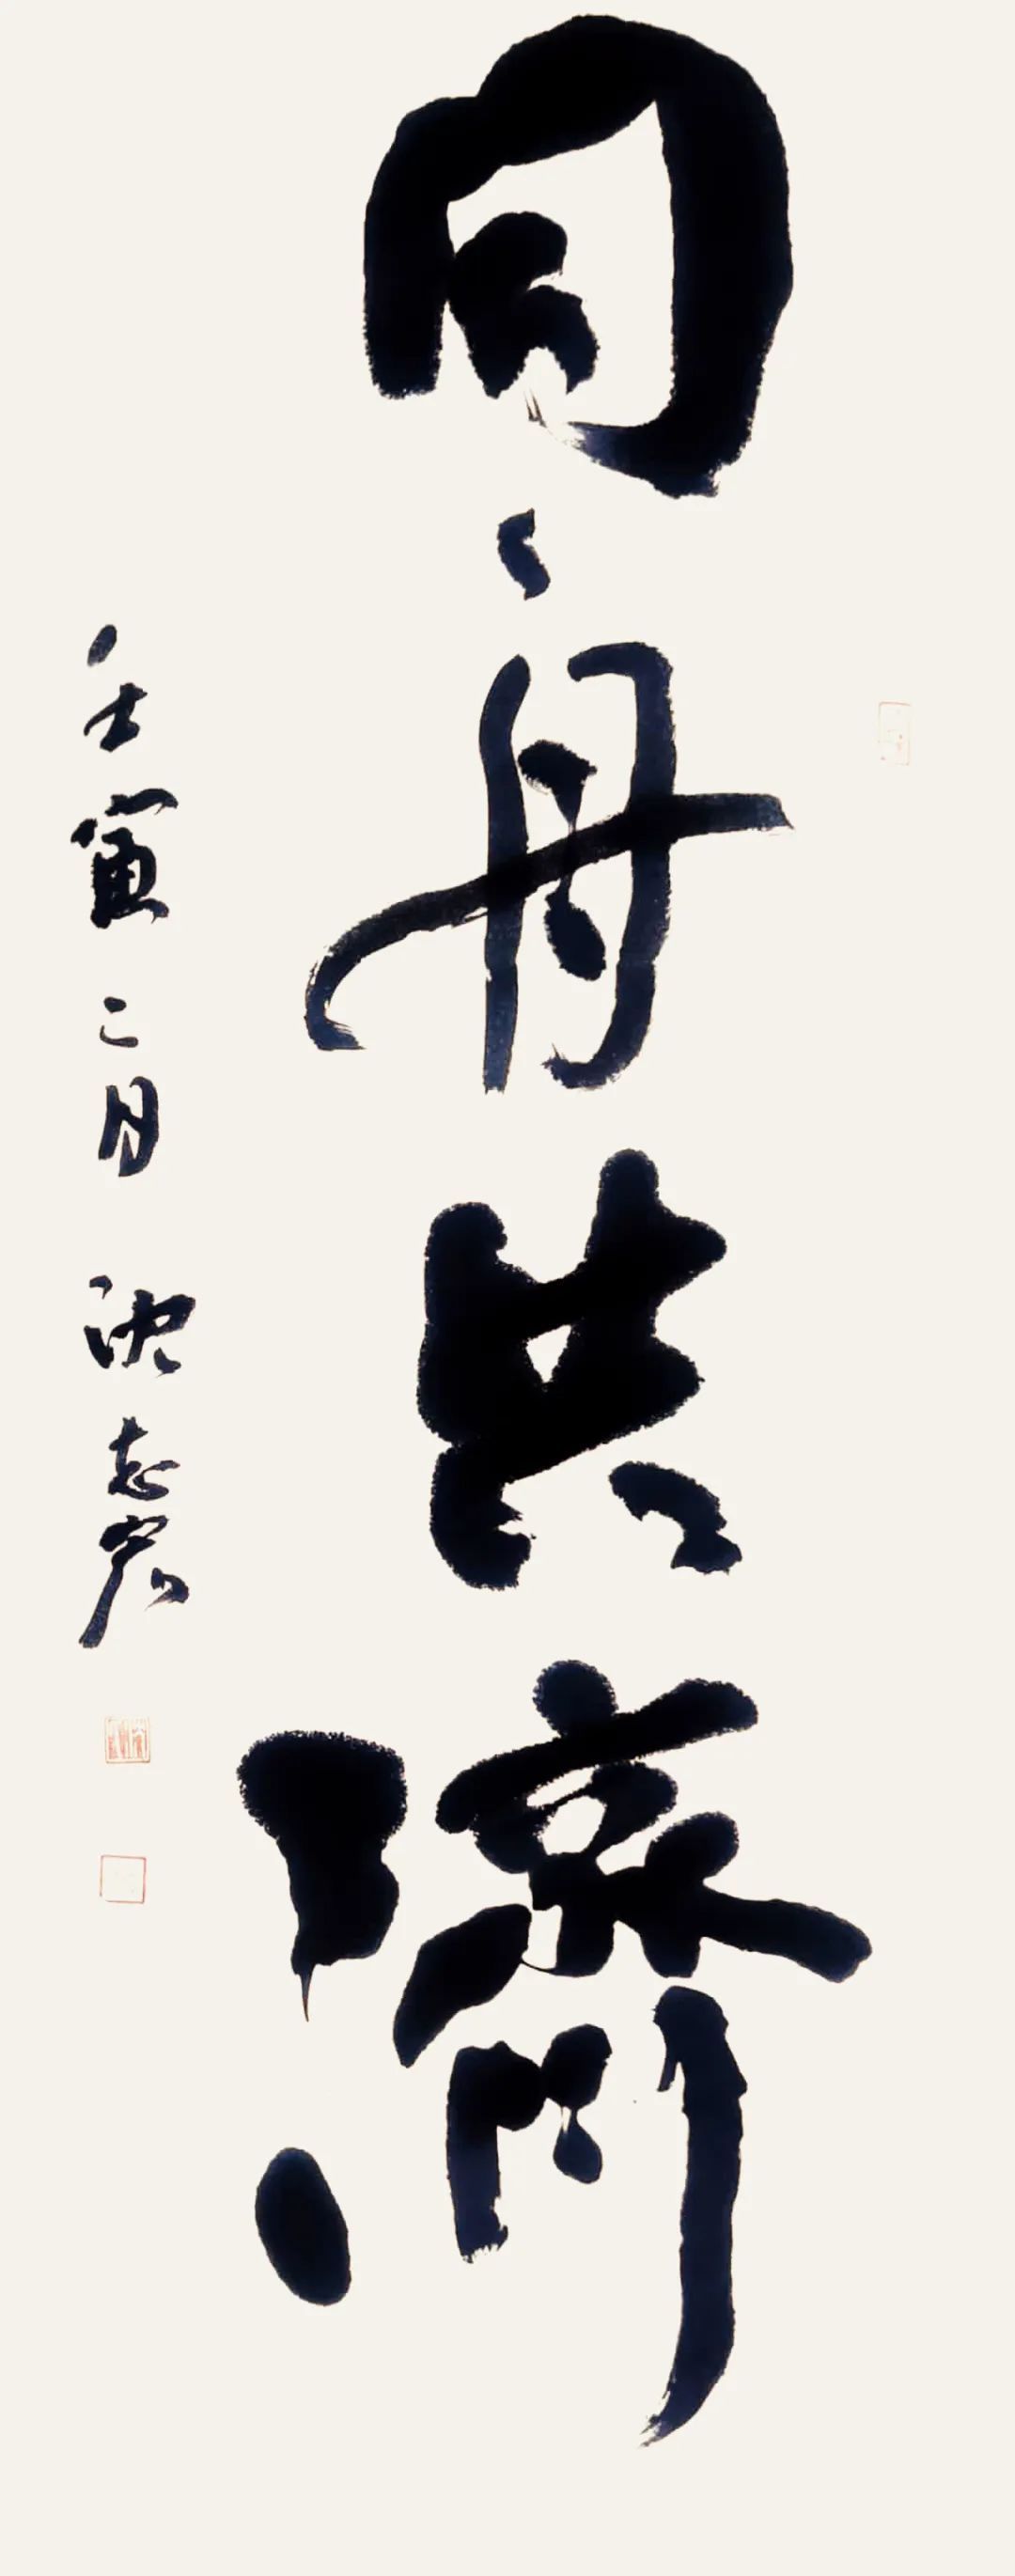 同舟共濟
壬寅二月 沈志宏